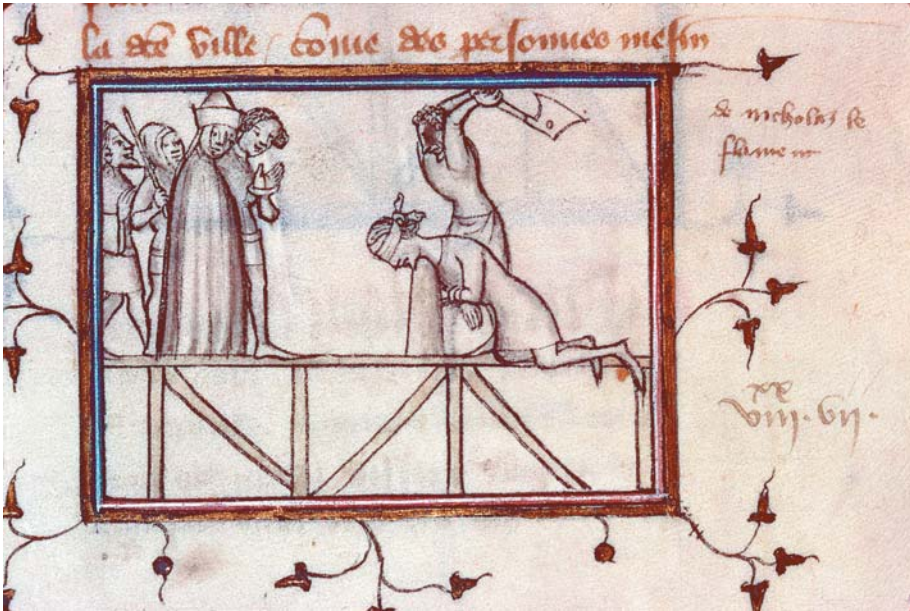 la dcē ville, cōme des personnes mesm
de nicholas le
flament
xx
viii·vii·